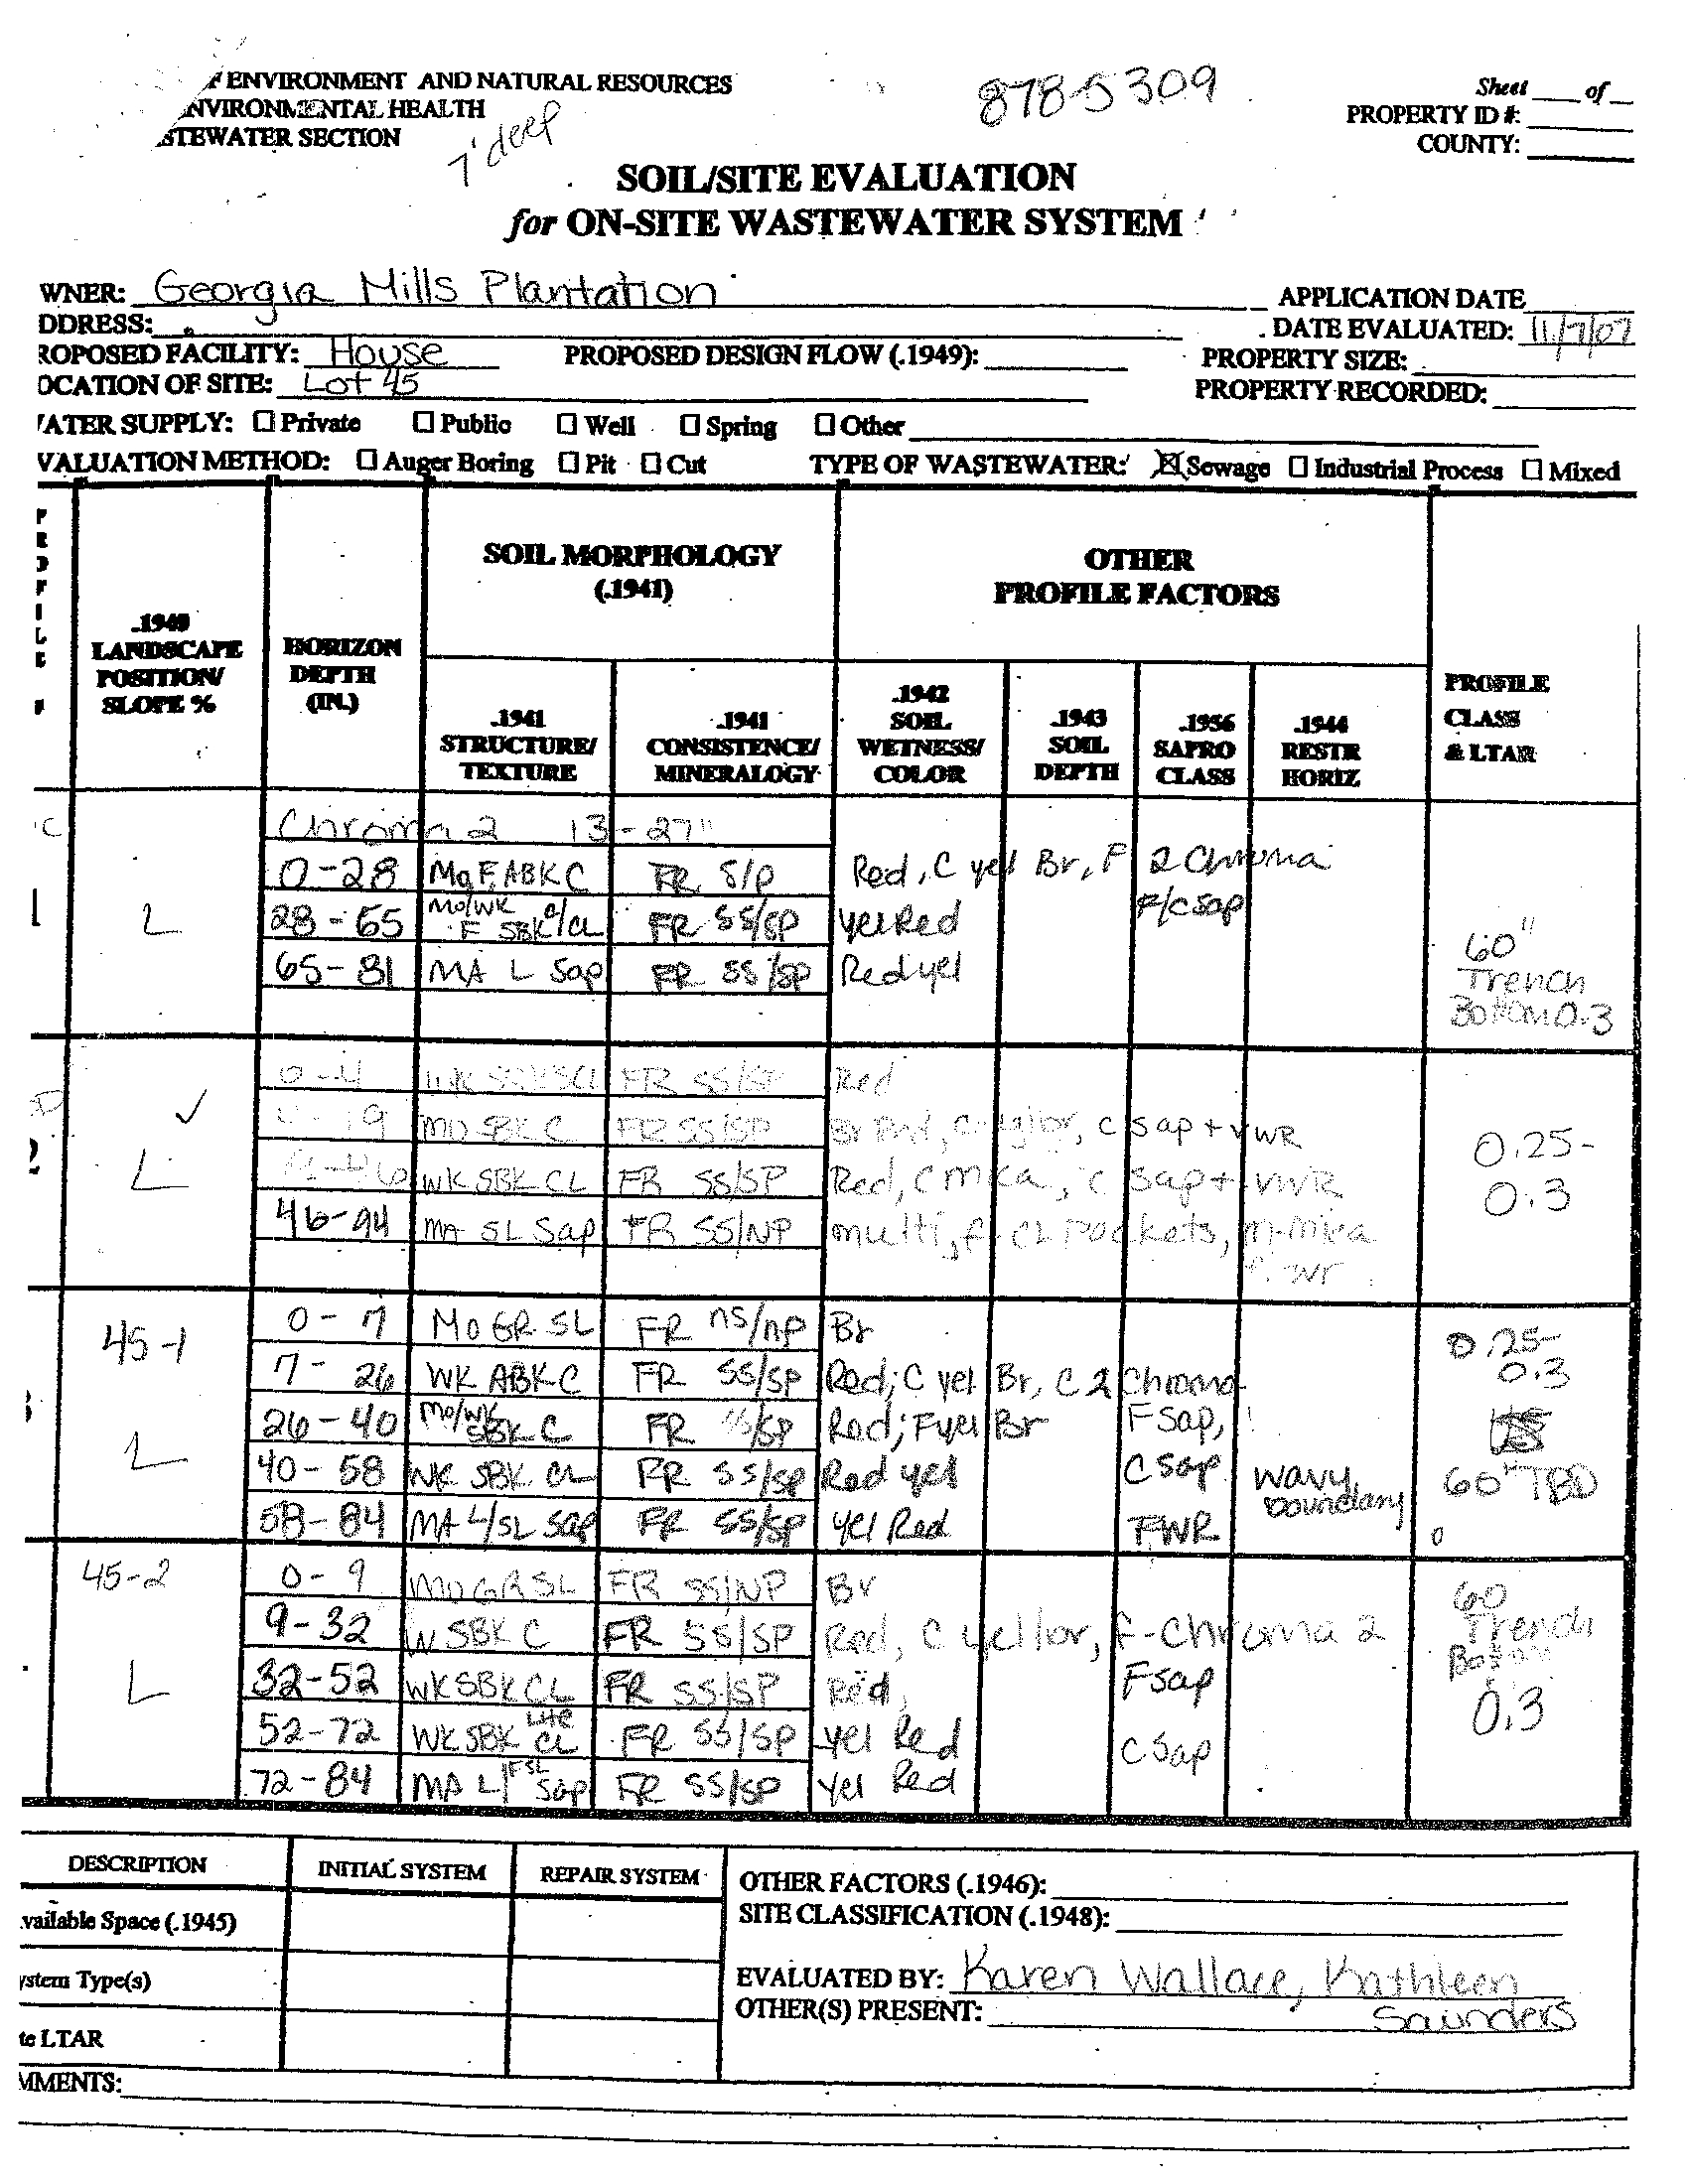 F ENVIRONMENT AND NATURAL RESOURCES
NVIRONMENTAL HEALTH
STEWATER SECTION
7' deep
8785309
Sheet ___ of __
PROPERTY ID #:
COUNTY:
SOIL/SITE EVALUATION
for ON-SITE WASTEWATER SYSTEM
WNER: Georgia Mills Plantation
APPLICATION DATE
DDRESS:
DATE EVALUATED: 11/7/07
ROPOSED FACILITY: House PROPOSED DESIGN FLOW (.1949): PROPERTY SIZE:
OCATION OF SITE: Lot 45 PROPERTY RECORDED:
ATER SUPPLY: ☐ Private ☐ Public ☐ Well ☐ Spring ☐ Other
VALUATION METHOD: ☐ Auger Boring ☐ Pit ☐ Cut TYPE OF WASTEWATER: ☒ Sewage ☐ Industrial Process ☐ Mixed
PROFILE #
.1940 LANDSCAPE POSITION/ SLOPE %
HORIZON DEPTH (IN.)
SOIL MORPHOLOGY (.1941)
OTHER PROFILE FACTORS
.1941 STRUCTURE/ TEXTURE
.1941 CONSISTENCE/ MINERALOGY
.1942 SOIL WETNESS/ COLOR
.1943 SOIL DEPTH
.1956 SAPRO CLASS
.1944 RESTR HORIZ
PROFILE CLASS & LTAR
Chroma 2 13-27"
1 L
0-28 Mo F, ABK C FR S/P Red, C yel Br, F 2 Chroma
28-65 Mo/WK F SBK C/CL FR SS/SP yel Red F/C sap
65-81 MA L Sap FR SS/SP Red yel
60" Trench Bottom 0.3
2 ✓ L
0-4 WK SBK SCL FR SS/SP Red
19 MO SBK C FR SS/SP Br Red, C yel br, C sap + vWR
WK SBK CL FR SS/SP Red, C mica, C sap + vWR
46-94 MA SL Sap FR SS/NP multi, f- CL pockets, m-mica
f. wr
0.25-
0.3
45-1 L
0-7 Mo GR SL FR ns/np Br
7-26 WK ABK C FR SS/SP Red; C yel Br, C 2 Chroma
26-40 Mo/WK SBK C FR /SP Red; F yel Br F Sap,
40-58 WK SBK CL FR SS/SP Red yel C Sap wavy boundary
58-84 MA L/SL Sap FR SS/SP yel Red FWR
0.25-
0.3
60" TBD
45-2 L
0-9 MO GR SL FR SS/NP Br
9-32 W SBK C FR SS/SP Red, C yel/or, f-Chroma 2
32-52 WK SBK CL FR SS/SP Red, F sap
52-72 WK SBK Lite CL FR SS/SP yel Red C Sap
72-84 MA L/FSL Sap FR SS/SP yel Red
60 Trench Bottom
0.3
DESCRIPTION INITIAL SYSTEM REPAIR SYSTEM
vailable Space (.1945)
ystem Type(s)
te LTAR
OTHER FACTORS (.1946):
SITE CLASSIFICATION (.1948):
EVALUATED BY: Karen Wallace, Kathleen
OTHER(S) PRESENT: Saunders
MMENTS: